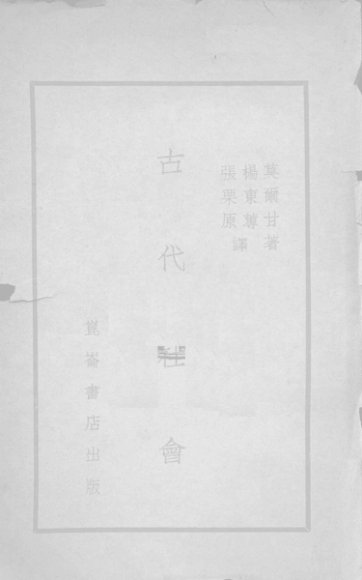 莫爾甘著
楊東蓴
張栗原
譯
古代社會
崑崙書店出版